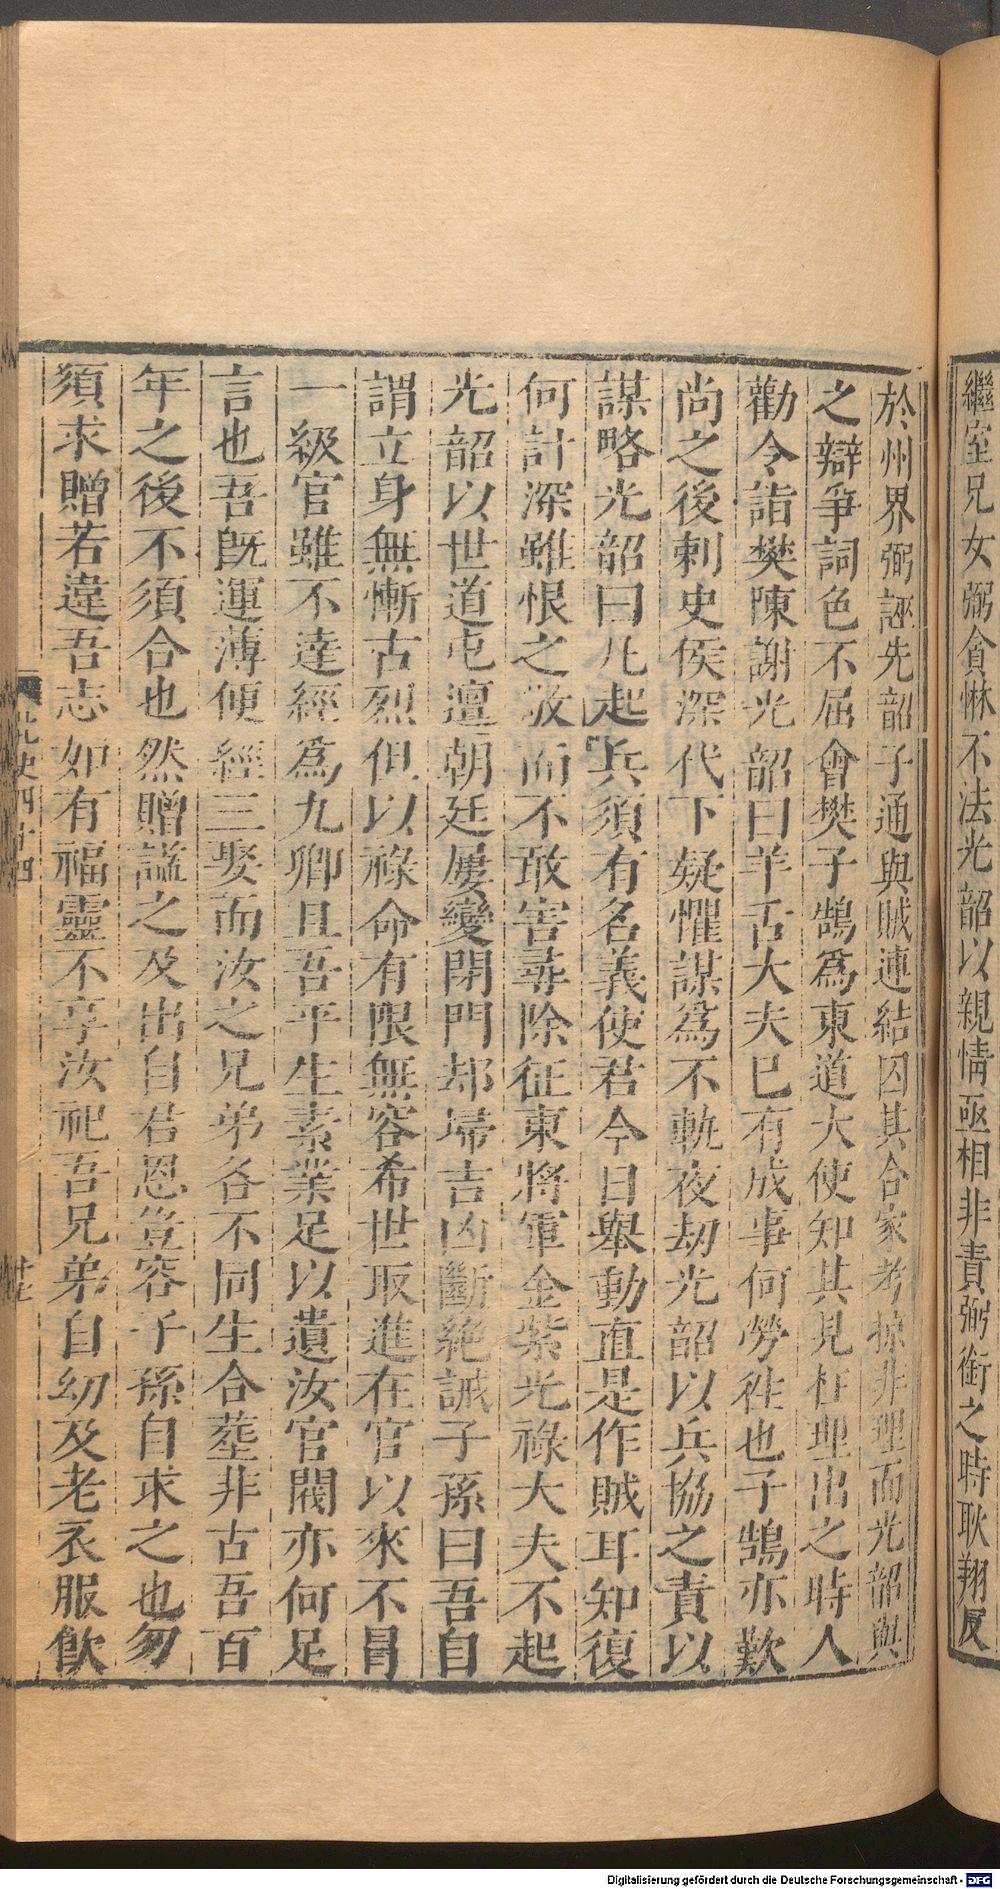 繼室兄女弼貪惏不法光韶以親情亟相非責弼銜之時耿翔反
於州界弼誣光韶子通與賊連結囚其合家考掠非理而光韶與
之辯爭詞色不屈會樊子鵠為東道大使知其見枉理出之時人
勸令詣樊陳謝光韶曰羊舌大夫已有成事何勞往也子鵠亦歎
尚之後刺史侯深代下疑懼謀為不軌夜劫光韶以兵脅之責以
謀略光韶曰凡起兵須有名義使君今日舉動直是作賊耳知復
何計深雖恨之敬而不敢害尋除征東將軍金紫光祿大夫不起
光韶以世道屯邅朝廷屢變閉門却埽吉凶斷絶誡子孫曰吾自
謂立身無慚古烈但以祿命有限無容希世取進在官以來不冒
一級官雖不達經為九卿且吾平生素業足以遺汝官閥亦何足
言也吾旣運薄便經三娶而汝之兄弟各不同生合塟非古吾百
年之後不須合也然贈謚之及出自君恩豈容子孫自求之也勿
須求贈若違吾志如有福靈不享汝祀吾兄弟自幼及老衣服飲
北史四十四
廿七
Digitalisierung gefördert durch die Deutsche Forschungsgemeinschaft - DFG